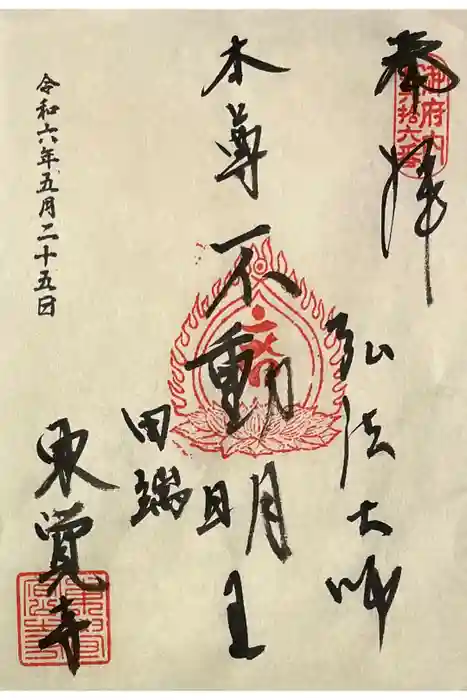 奉拝
御府内
六拾六番
弘法大師
本尊不動明王
田端
東覚寺
令和六年五月二十五日